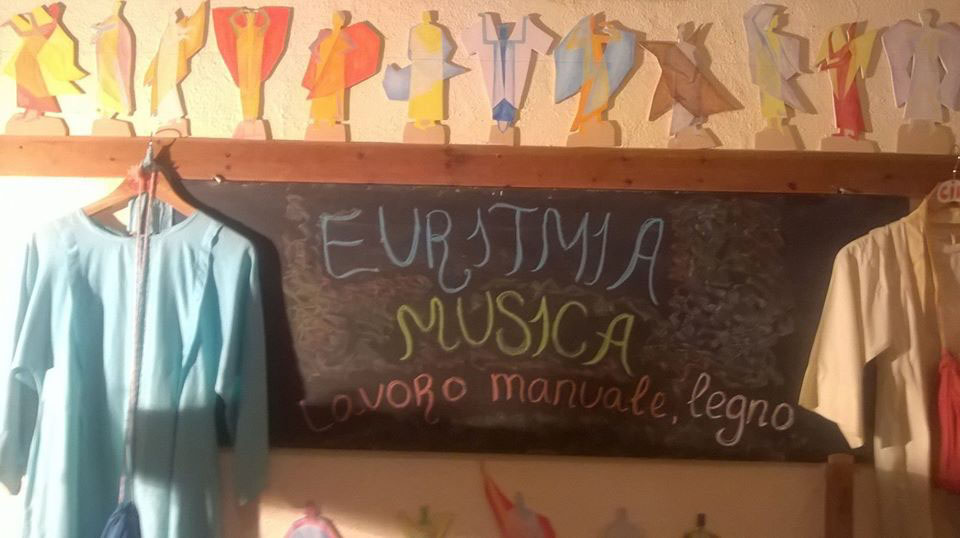 EURITMIA
MUSICA
Lavoro manuale, legno